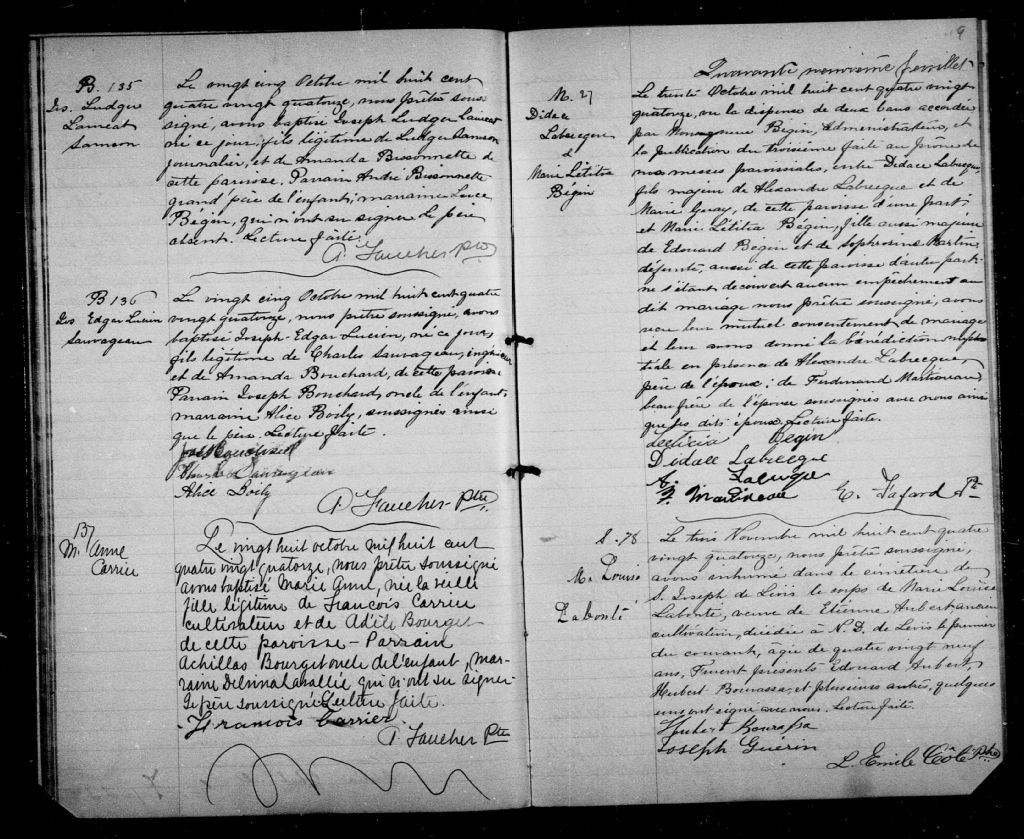 B. 135
Jos. Ludger
Laméat
Samson
Le vingt cinq Octobre mil huit cent
quatre vingt quatorze, nous prêtre sous-
signé, avons baptisé Joseph Ludger Laméat
né ce jour, fils légitime de Ludger Samson
journalier, et de Amanda Bissonnette de
cette paroisse. Parrain André Bissonnette
grand père de l'enfant; marraine Luce
Bégin, qui n'ont su signer le père
absent. Lecture faite.
P. Faucher Ptre
B 136
Jos Edgar Lucien
Sauvageau
Le vingt cinq Octobre mil huit cent quatre
vingt quatorze, nous prêtre soussigné, avons
baptisé Joseph-Edgar Lucien, né ce jour,
fils légitime de Charles Sauvageau, ingénieur
et de Amanda Bouchard, de cette paroisse
Parrain Joseph Bouchard, oncle de l'enfant
marraine Alice Boily, soussignés ainsi
que le père. Lecture faite.
Jos Bouchard
Sauvageau
Alice Boily
P. Faucher Ptre
137
M. Anne
Carrier
Le vingt huit octobre mil huit cent
quatre vingt quatorze, nous prêtre soussigné
avons baptisé Marie Anne, née la veille
fille légitime de François Carrier
cultivateur et de Adèle Bourget
de cette paroisse - Parrain
Achillas Bourget oncle de l'enfant, mar-
raine Delvina Lavallée qui n'ont su signer
le père soussigné Lecture faite.
François Carrier
P. Faucher Ptre
9
Quarante neuvième feuillet
M. 27
Didace
Labrecque
&
Marie Létitia
Bégin
Le trente Octobre mil huit cent quatre vingt
quatorze, vu la dispense de deux bans accordée
par Monseigneur Bégin, Administrateur, et
la publication du troisième faite au prône de
nos messes paroissiales, entre Didace Labrecque,
fils majeur de Alexandre Labrecque et de
Marie Guay, de cette paroisse d'une part;
et Marie Létitia Bégin, fille aussi majeure
de Edouard Begin et de Sophronie Martin
défunte, aussi de cette paroisse d'autre part;
ne s'étant découvert aucun empêchement au
dit mariage nous prêtre soussigné, avons
reçu leur mutuel consentement de mariage
et leur avons donné la bénédiction nuptiale
tiale en présence de Alexandre Labrecque,
père de l'époux; de Ferdinand Martineau
beau frère de l'épouse soussignés avec nous ainsi
que les dits époux. Lecture faite.
Leeticia Begin
Didace Labrecque
A. Labrecque
F. Martineau E. Fafard Ptre
S. 78
M. Louise
Labonté
Le trois Novembre mil huit cent quatre
vingt quatorze, nous prêtre soussigné,
avons inhumé dans le cimetière de
S. Joseph de Lévis le corps de Marie Louise
Labonté, veuve de Etienne Aubert, ancien
cultivateur, décédée à N. D. de Lévis le premier
du courant, âgée de quatre vingt neuf
ans, Furent présents Edouard Aubert,
Hubert Bourassa, et plusieurs autres, quelques
uns ont signé avec nous. Lecture faite.
Hubert Bourassa
Joseph Guérin
L. Emile Côté Ptre